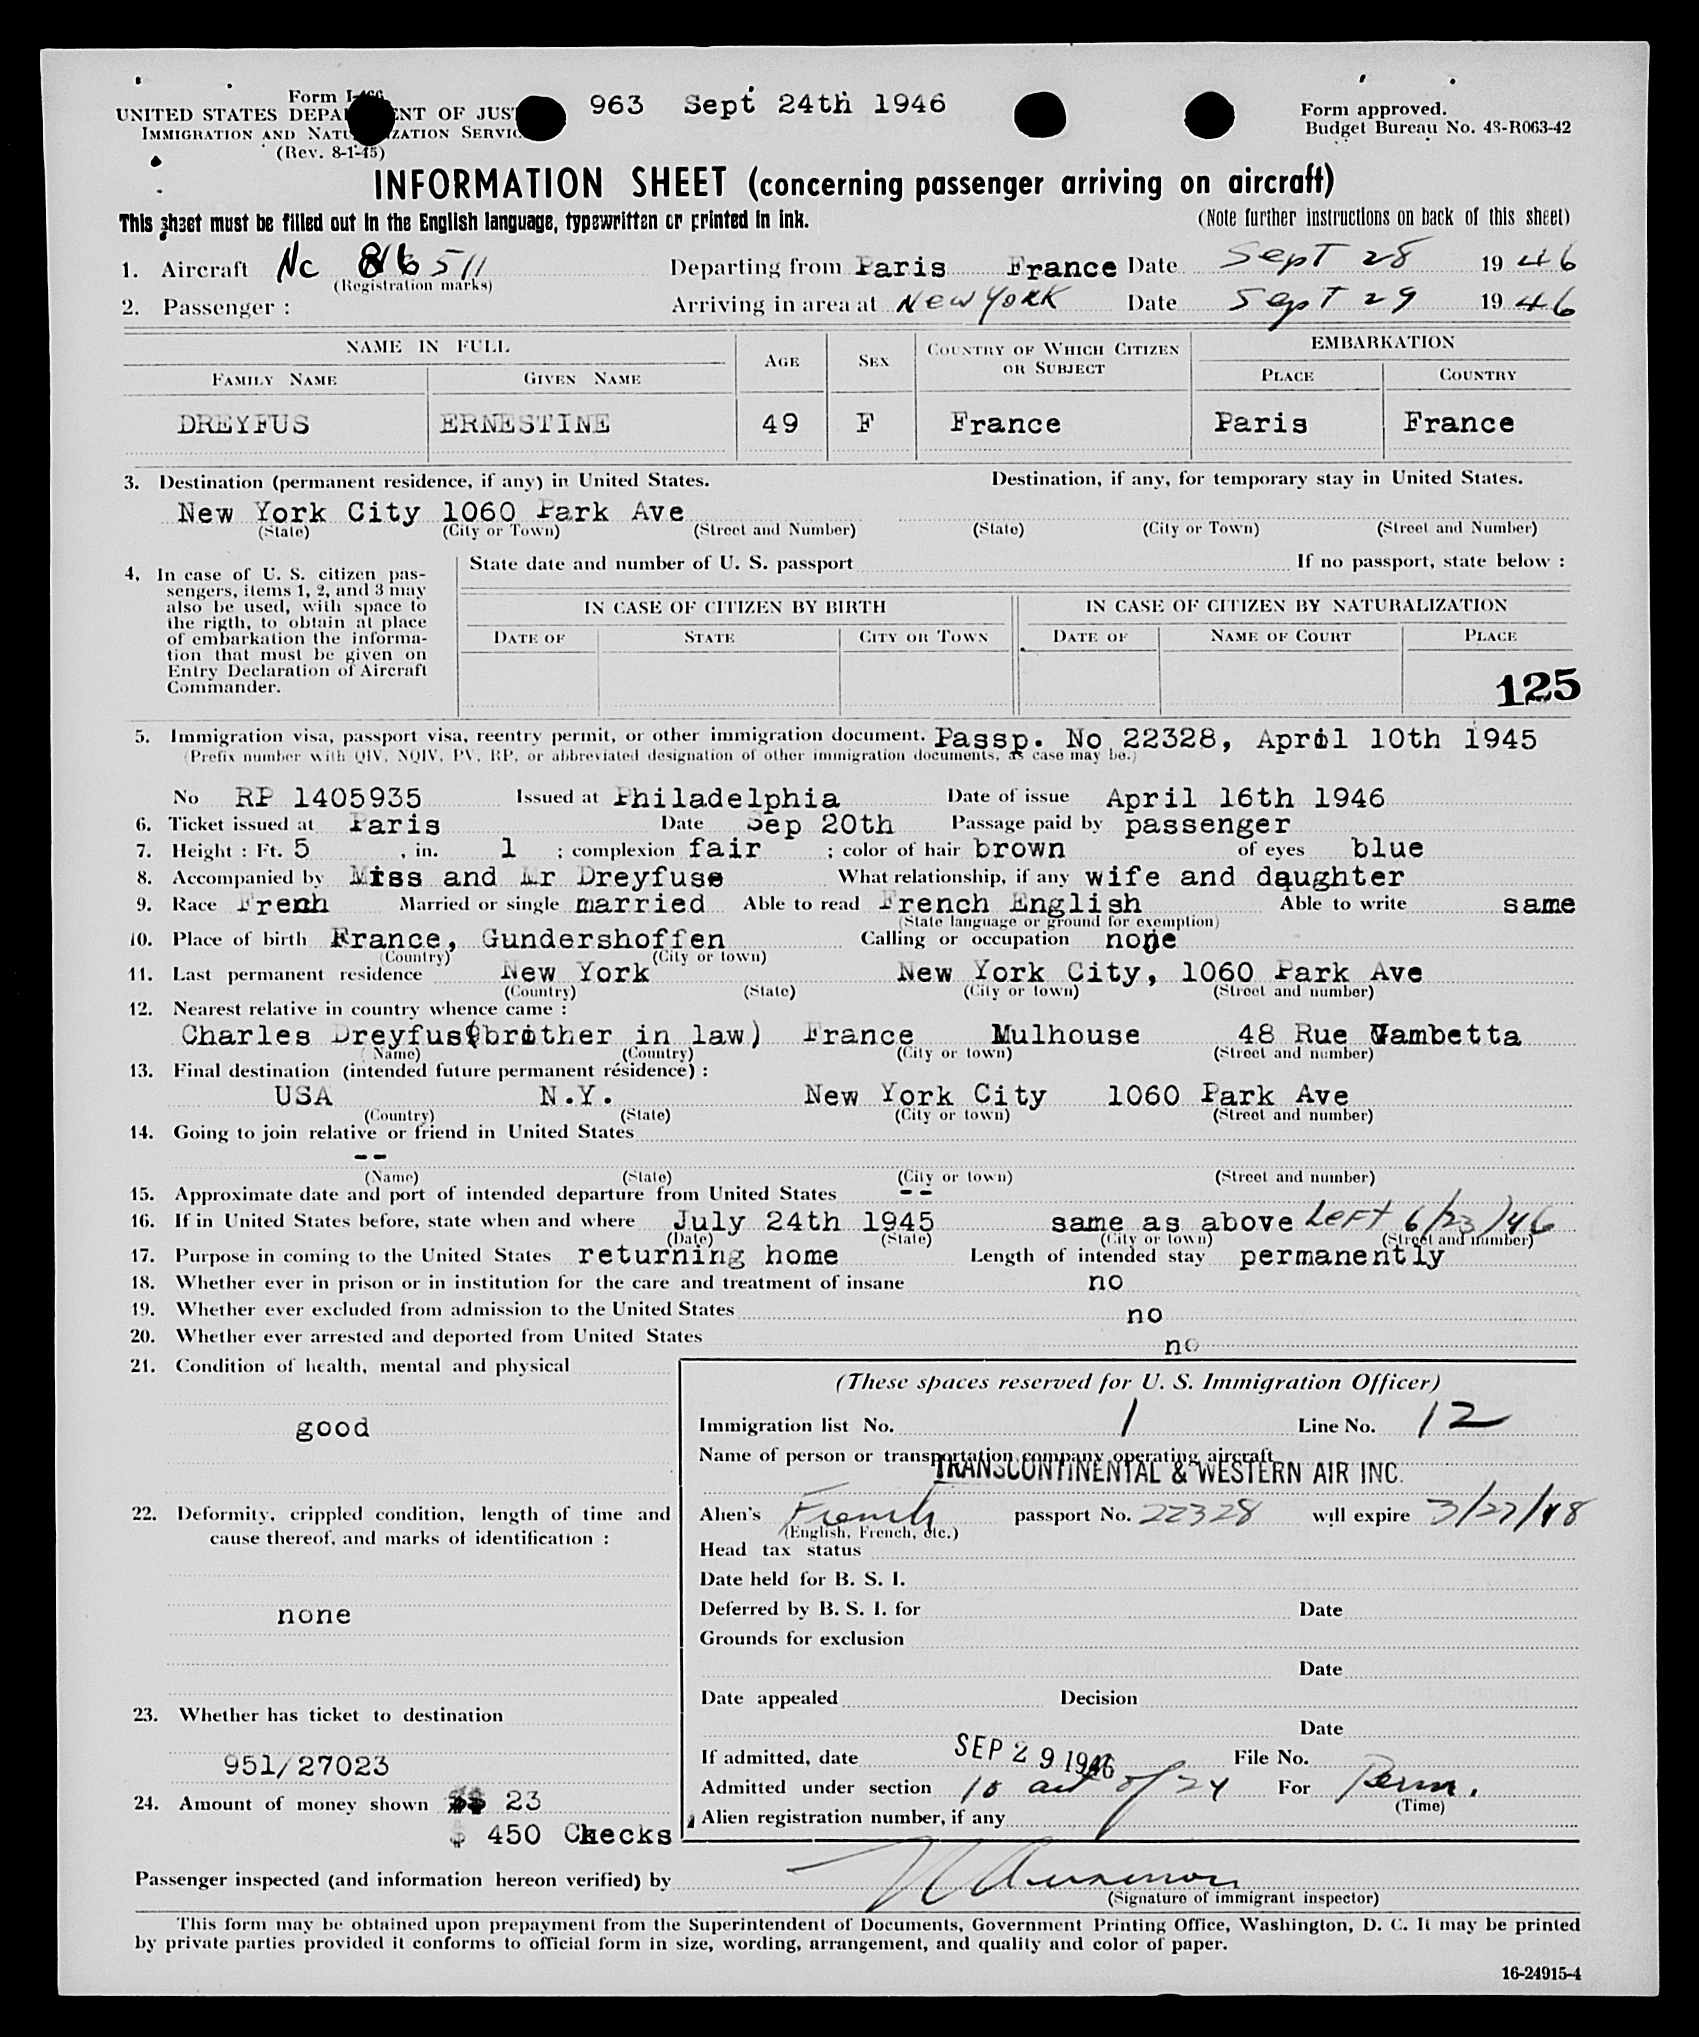 Form I-466
963 Sept 24th 1946
Form approved.
UNITED STATES DEPA ENT OF JUS
Budget Bureau No. 43-R063-42
IMMIGRATION AND NATU IZATION SERVIC
(Rev. 8-1-45)
INFORMATION SHEET (concerning passenger arriving on aircraft)
This sheet must be filled out in the English language, typewritten or printed in ink. (Note further instructions on back of this sheet)
1. Aircraft Nc 86511 Departing from Paris France Date Sept 28 1946
(Registration marks)
2. Passenger : Arriving in area at New York Date Sept 29 1946
NAME IN FULL AGE SEX COUNTRY OF WHICH CITIZEN OR SUBJECT EMBARKATION
FAMILY NAME GIVEN NAME PLACE COUNTRY
DREYFUS ERNESTINE 49 F France Paris France
3. Destination (permanent residence, if any) in United States. Destination, if any, for temporary stay in United States.
New York City 1060 Park Ave
(State) (City or Town) (Street and Number) (State) (City or Town) (Street and Number)
4. In case of U. S. citizen pas-
sengers, items 1, 2, and 3 may
also be used, with space to
the rigth, to obtain at place
of embarkation the informa-
tion that must be given on
Entry Declaration of Aircraft
Commander.
State date and number of U. S. passport If no passport, state below :
IN CASE OF CITIZEN BY BIRTH IN CASE OF CITIZEN BY NATURALIZATION
DATE OF STATE CITY OR TOWN DATE OF NAME OF COURT PLACE
125
5. Immigration visa, passport visa, reentry permit, or other immigration document. Passp. No 22328, April 10th 1945
(Prefix number with QIV, NQIV, PV, RP, or abbreviated designation of other immigration documents, as case may be.)
No RP 1405935 Issued at Philadelphia Date of issue April 16th 1946
6. Ticket issued at Paris Date Sep 20th Passage paid by passenger
7. Height : Ft. 5 , in. 1 ; complexion fair ; color of hair brown of eyes blue
8. Accompanied by Miss and Mr Dreyfuse What relationship, if any wife and daughter
9. Race Frenh Married or single married Able to read French English Able to write same
(State language or ground for exemption)
10. Place of birth France, Gundershoffen Calling or occupation none
(Country) (City or town)
11. Last permanent residence New York New York City, 1060 Park Ave
(Country) (State) (City or town) (Street and number)
12. Nearest relative in country whence came :
Charles Dreyfus(brother in law) France Mulhouse 48 Rue Gambetta
(Name) (Country) (City or town) (Street and number)
13. Final destination (intended future permanent résidence) :
USA N.Y. New York City 1060 Park Ave
(Country) (State) (City or town) (Street and number)
14. Going to join relative or friend in United States
--
(Name) (State) (City or town) (Street and number)
15. Approximate date and port of intended departure from United States --
16. If in United States before, state when and where July 24th 1945 same as above Left 6/23/46
(Date) (State) (City or town) (Street and number)
17. Purpose in coming to the United States returning home Length of intended stay permanently
18. Whether ever in prison or in institution for the care and treatment of insane no
19. Whether ever excluded from admission to the United States no
20. Whether ever arrested and deported from United States no
21. Condition of health, mental and physical
good
22. Deformity, crippled condition, length of time and
cause thereof, and marks of identification :
none
23. Whether has ticket to destination
951/27023
24. Amount of money shown $$ 23
$ 450 Checks
(These spaces reserved for U. S. Immigration Officer)
Immigration list No. 1 Line No. 12
Name of person or transportation company operating aircraft
TRANSCONTINENTAL & WESTERN AIR INC.
Alien's French passport No. 22328 will expire 3/27/48
(English, French, etc.)
Head tax status
Date held for B. S. I.
Deferred by B. S. I. for Date
Grounds for exclusion
Date
Date appealed Decision
Date
If admitted, date SEP 29 1946 File No.
Admitted under section 10 act of 24 For Perm.
(Time)
Alien registration number, if any
Passenger inspected (and information hereon verified) by
(Signature of immigrant inspector)
This form may be obtained upon prepayment from the Superintendent of Documents, Government Printing Office, Washington, D. C. It may be printed
by private parties provided it conforms to official form in size, wording, arrangement, and quality and color of paper.
16-24915-4